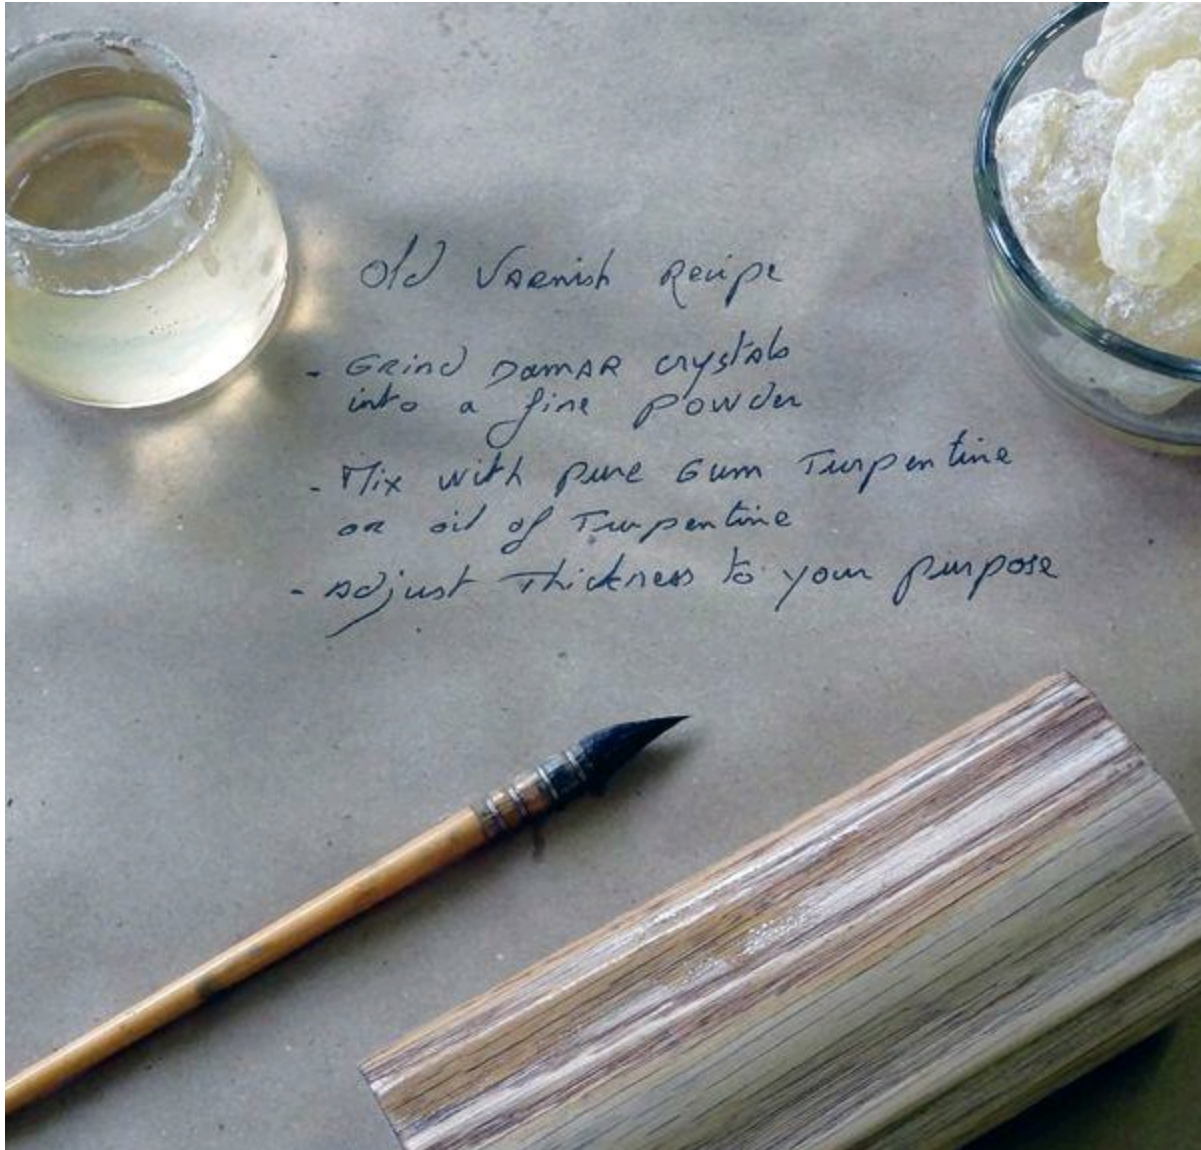 Old Varnish Recipe
- Grind Damar crystals
into a fine powder
- Mix with pure Gum Turpentine
or oil of Turpentine
- Adjust Thickness to your purpose